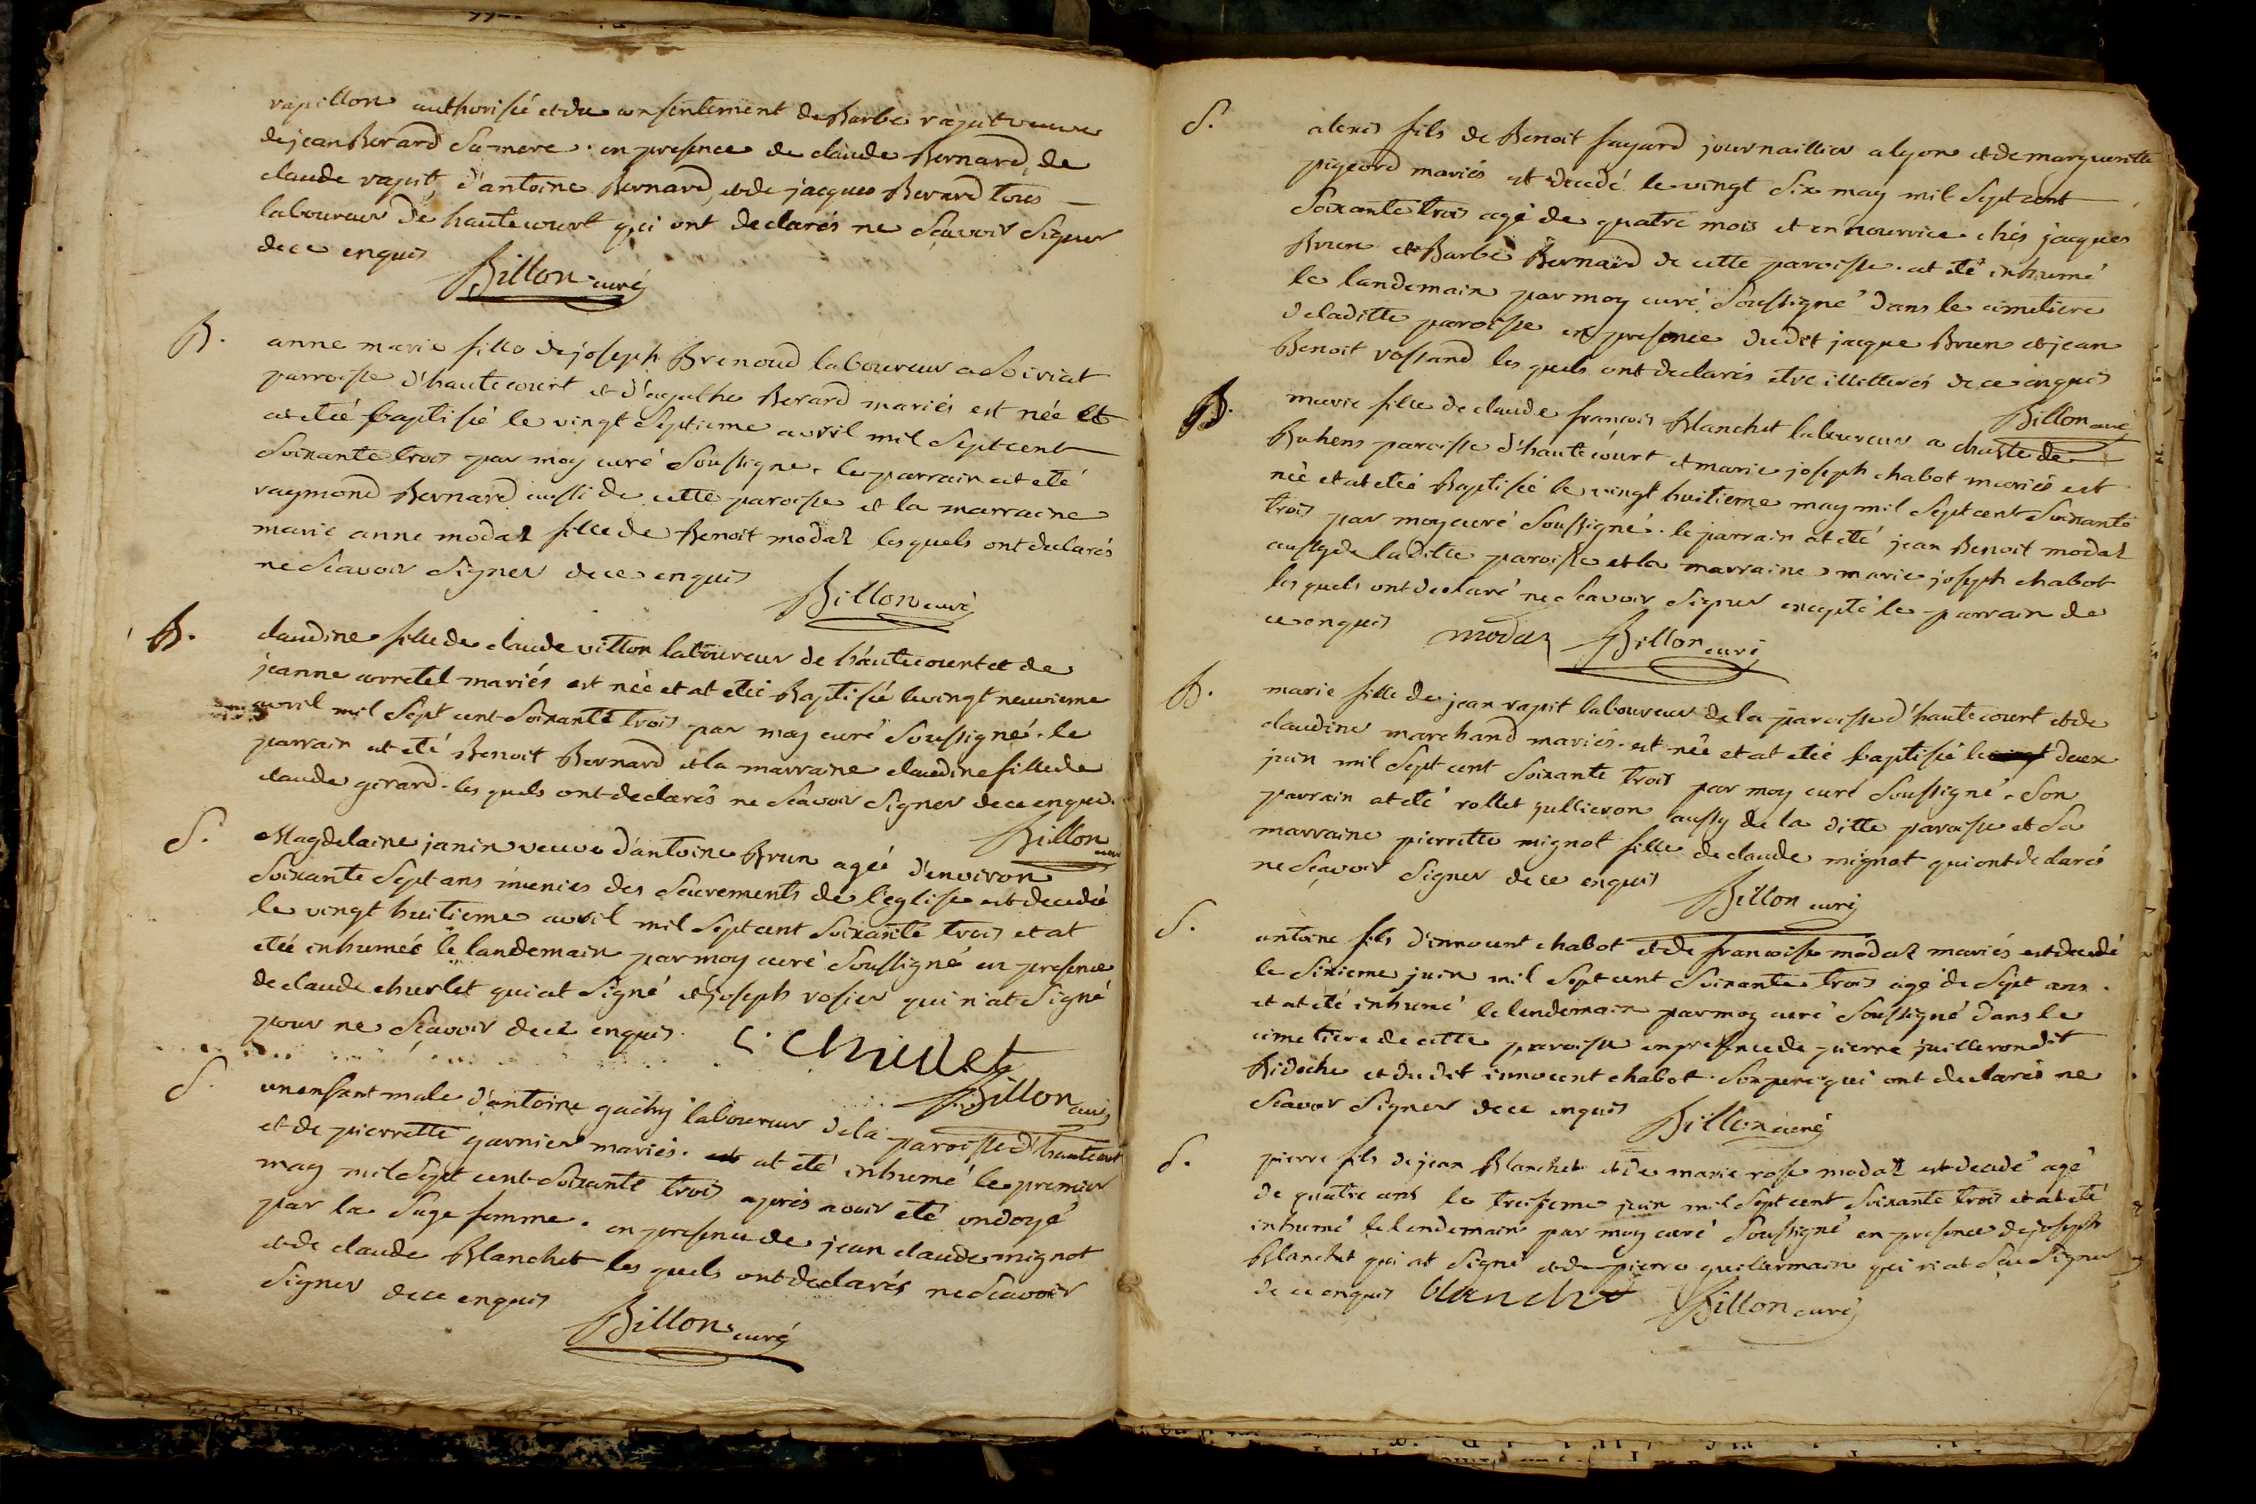 rapillon authorisé et du consentement de Barbe rapit veuve
de jean Berard sa mere. en presence de claude Bernard, de
claude rapit, d'antoine Bernard, et de jacques Berard tous
laboureur de hautecourt qui ont declarés ne scavoir signer
de ce enquis
Billon curé
B.
anne marie fille de joseph Brenoud laboureur a Soiriat
parroisse d'hautecourt et d'agathe Berard mariés est née et
at eteé baptisée le vingt septieme avril mil sept cent
soixante trois par moy curé soussigne. le parrain at eté
raymond Bernard aussi de cette paroisse et la marraine
marie anne modaz fille de Benoit modaz lesquels ont declarés
ne scavoir signer de ce enquis
Billon curé
B.
claudine fille de claude vitton laboureur de hautecourt et de
jeanne corretel mariés est neé et at eteé Baptisée le vingt neuvieme
avril mil sept cent soixante trois par moy curé soussigné. le
parrain at eté Benoit Bernard et la marraine claudine fille de
claude girard. lesquels ont declarés ne scavoir signer de ce enquis.
Billon curé
S.
Magdelaine janin veuve d'antoine Brun ageé d'environ
soixante sept ans munies des sacrements de l'eglise est decedeé
le vingt huitieme avril mil sept cent soixante trois et at
eteé inhumeé le landemain par moy curé soussigné en presence
de claude churlet qui at signé et joseph rosier qui n'at signé
pour ne scavoir de ce enquis.
C. Churlet
Billon curé
S.
un enfant male d'antoine gachy laboureur de la paroisse d'hautecourt
et de pierrette garnier mariés. at eté inhumé le premier
may mil sept cent soixante trois apres avoir eté ondoyé
par la sage femme. en presence de jean claude mignot
et de claude Blanchet lesquels ont declarés ne scavoir
signer de ce enquis
Billon curé
S.
alexis fils de Benoit fayard journaillier a lyon et de marguerite
pigeord mariés est decedé le vingt six may mil sept cent
soixante trois agé de quatre mois et en nourrice chés jacques
Brun et Barbe Bernard de cette paroisse. at eté inhumé
le landemain par moy curé soussigné dans le cimetiere
de laditte paroisse en presence dudit jacque Brun et jean
Benoit vossand lesquels ont declarés etre illetterés de ce enquis
Billon curé
B.
marie fille de claude francois Blanchet laboureur a charte de
Buhens paroisse d'hautecourt et marie joseph chabot mariés est
neé et at eteé Baptisée le vingt huitieme may mil sept cent soixante
trois par moy curé soussigné. le parrain at eté jean Benoit modaz
aussy de laditte paroisse et la marraine marie joseph chabot
lesquels ont declaré ne scavoir signer excepté le parrain de
ce enquis
modaz Billon curé
B.
marie fille de jean rapit laboureur de la paroisse d'hautecourt et de
claudine marchand mariés. est neé et at eteé baptisée le deux
juin mil sept cent soixante trois par moy curé soussigné. son
parrain at eté rollet gullieron aussy de la ditte paroisse et sa
marraine pierrette mignot fille de claude mignot qui ont declarés
ne scavoir signer de ce enquis
Billon curé
S.
antoine fils d'innocent chabot et de francoise modaz mariés est decedé
le sixieme juin mil sept cent soixante trois agé de sept ans.
et at eté inhumé le lendemain par moy curé soussigné dans le
cimetiere de cette paroisse en presence de pierre juilleron dit
Bidoche et du dit innocent chabot. son pere qui ont declarés ne
scavoir signer de ce enquis
Billon curé
S.
pierre fils de jean Blanchet et de marie rose modaz est decedé agé
de quatre ans le treisieme juin mil sept cent soixante trois et at eté
inhumé le lendemain par moy curé soussigné en presence de joseph
Blanchet qui at signé et de pierre guillermain qui n'at sceu signer
de ce enquis blanchet Billon curé